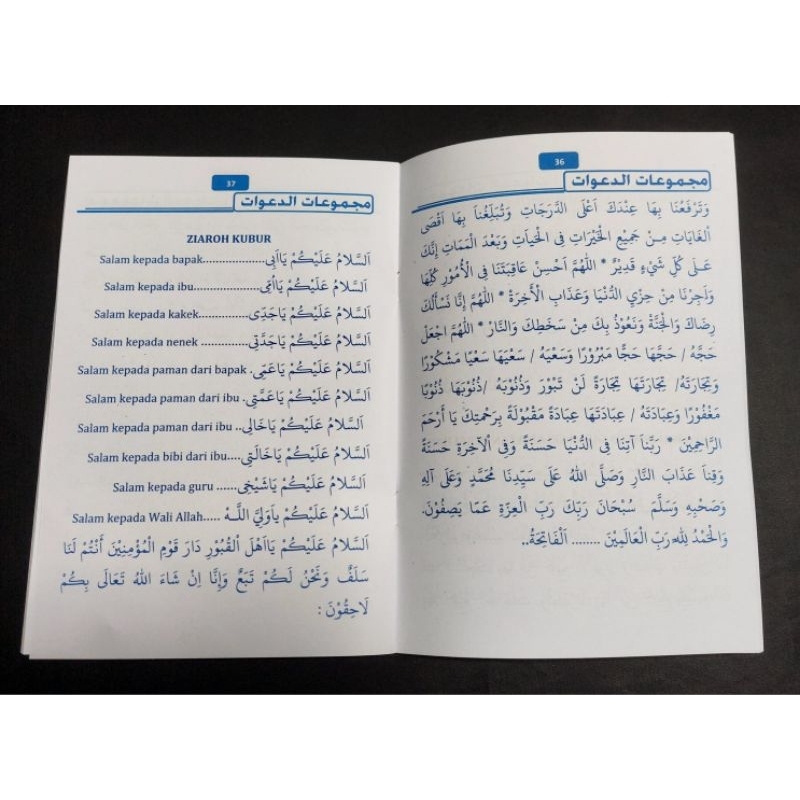 36
مجموعات الدعوات
وَتَرْفَعُنَا بِهَا عِنْدَكَ اَعْلَى الدَّرَجَاتِ وَتُبَلِّغُنَا بِهَا اَقْصَى
الْغَايَاتِ مِنْ جَمِيْعِ الْخَيْرَاتِ فِى الْحَيَاتِ وَبَعْدَ الْمَمَاتِ اِنَّكَ
عَلَى كُلِّ شَيْءٍ قَدِيْرٌ * اَللّٰهُمَّ اَحْسِنْ عَاقِبَتَنَا فِى الْأُمُوْرِ كُلِّهَا
وَاَجِرْنَا مِنْ خِزْيِ الدُّنْيَا وَعَذَابِ الْأَخِرَةْ * اَللّٰهُمَّ اِنَّا نَسْأَلُكَ
رِضَاكَ وَالْجَنَّةَ وَنَعُوْذُ بِكَ مِنْ سَخَطِكَ وَالنَّارْ * اَللّٰهُمَّ اجْعَلْ
حَجَّهُ / حَجَّهَا حَجًّا مَبْرُوْرًا وَسَعْيَهُ / سَعْيَهَا سَعْيًا مَشْكُوْرًا
وَتِجَارَتَهُ/ تِجَارَتَهَا تِجَارَةً لَنْ تَبُوْرَ وَذُنُوْبَهُ /ذُنُوْبَهَا ذُنُوْبًا
مَغْفُوْرًا وَعِبَادَتَهُ / عِبَادَتَهَا عِبَادَةً مَقْبُوْلَةً بِرَحْمَتِكَ يَا أَرْحَمَ
الرَّاحِمِيْنَ * رَبَّنَا آتِنَا فِى الدُّنْيَا حَسَنَةً وَفِى الْآخِرَةِ حَسَنَةً
وَقِنَا عَذَابَ النَّارِ وَصَلَّى اللهُ عَلَى سَيِّدِنَا مُحَمَّدٍ وَعَلَى آلِهِ
وَصَحْبِهِ وَسَلَّمَ سُبْحَانَ رَبِّكَ رَبِّ الْعِزَّةِ عَمَّا يَصِفُوْنَ.
وَالْحَمْدُ لِلّٰهِ رَبِّ الْعَالَمِيْنَ ........ اَلْفَاتِحَةُ..
37
مجموعات الدعوات
ZIAROH KUBUR
اَلسَّلَامُ عَلَيْكُمْ يَااَبِى...............Salam kepada bapak
اَلسَّلَامُ عَلَيْكُمْ يَااُمِّى...............Salam kepada ibu
اَلسَّلَامُ عَلَيْكُمْ يَاجَدِّى............Salam kepada kakek
اَلسَّلَامُ عَلَيْكُمْ يَاجَدَّتِى ............Salam kepada nenek
اَلسَّلَامُ عَلَيْكُمْ يَاعَمِّى. Salam kepada paman dari bapak
اَلسَّلَامُ عَلَيْكُمْ يَاعَمَّتِى. Salam kepada paman dari ibu
اَلسَّلَامُ عَلَيْكُمْ يَاخَالِى.. Salam kepada paman dari ibu
اَلسَّلَامُ عَلَيْكُمْ يَاخَالَتِى....Salam kepada bibi dari ibu
اَلسَّلَامُ عَلَيْكُمْ يَاشَيْخِى...... Salam kepada guru
اَلسَّلَامُ عَلَيْكُمْ يَاوَلِيَّ اللّٰهْ .....Salam kepada Wali Allah
اَلسَّلَامُ عَلَيْكُمْ يَااَهْلَ الْقُبُوْرِ دَارَ قَوْمِ الْمُؤْمِنِيْنَ أَنْتُمْ لَنَا
سَلَفٌ وَنَحْنُ لَكُمْ تَبَعٌ وَاِنَّا اِنْ شَاءَ اللهُ تَعَالَى بِكُمْ
لَاحِقُوْنَ :